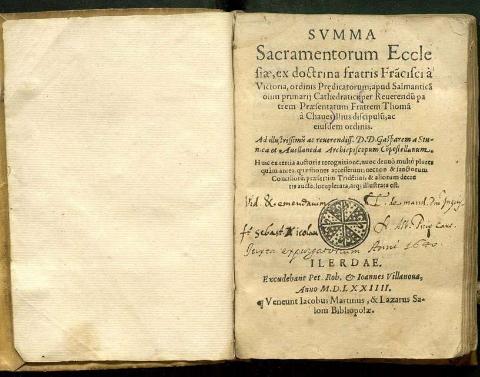 SVMMA
Sacramentorum Eccle
siæ, ex doctrina fratris Frãcisci à
Victoria, ordinis Prędicatorum, apud Salmanticã
olim primarij Cathedratici, per Reuerendũ pa
trem Præsentatum Fratrem Thomã
à Chaues illius discipulũ, ac
eiusdem ordinis.
Ad illustrissimũ ac reuerendiss. D.D. Gasparem a Stu-
nica et Auellaneda Archiepiscopum Cõpostellanum.
Huic ex tertia auctoris recognitione, nunc denuò multò plures
quàm antea quæstiones accesserunt: necnon & sanctorum
Conciliorũ, præsertim Tridētini, & aliorum decre
tis aucta, locupletata, atq; illustrata est.
Vid. & emendatum de mand.
fr Sebast Nicolau
Iuxta expurgatorium Anni 1640
ILERDAE.
Excudebant Pet. Rob. & Ioannes Villanoua,
Anno M.D.LXXIIII.
¶ Veneunt Iacobus Martinus, & Lazarus Sa-
lom Bibliopolæ.